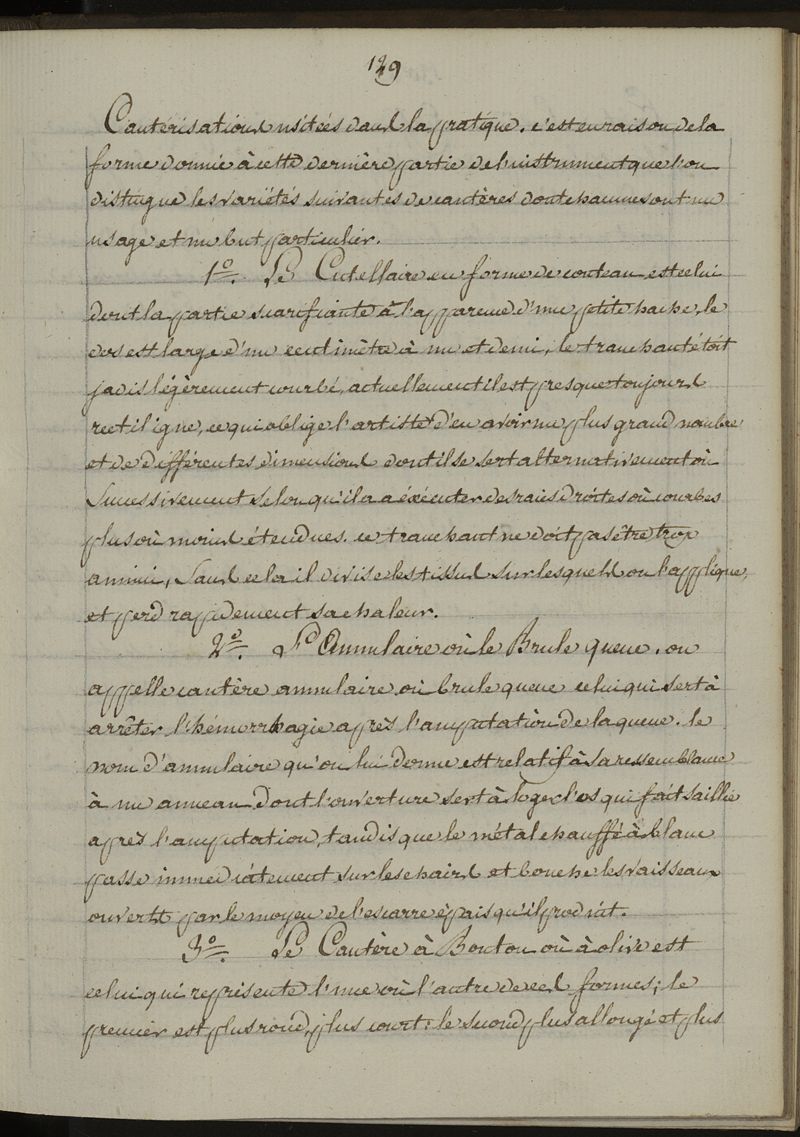 129
Cautérisations usitées dans la pratique. c'est en raison de la
forme donnée à cette dernière partie de l'instrument que l'on
distingue les variétés suivantes de cautères dont chacunes ont un
usage et un but particulier.
1º. Le Cutellaire en forme de couteau est celui
dont la partie scarifiante à l'apparence d'une petite hache, le
dos est large d'un centimètre à un et demi, le tranchant étoit
jadis légèrement courbé, actuellement il est presque toujours
rectiligne, ce qui oblige l'artiste d'en avoir un plus grand nombre
et de différentes dimensions dont il se sert alternativement où
Successivement selon qu'il a à éxécuter des raies droites où courbes
plus où moins étendues. ce tranchant ne doit pas être trop
aminci, Sans cela il divise les tissus sur lesquels on l'applique,
et perd rapidement sa chaleur.
2º. L'Annulaire où le Brule queue. on
appelle cautère annulaire où brule queue celui qui sert à
arrêter l'hémorrhagie après l'amputation de la queue. le
nom d'annulaire qu'on lui donne est relatif à sa ressemblance
à un anneau dont l'ouverture sert à loger l'os qui fait saillie
après l'amputation, tandis que le métal chauffé à blanc
passe immédiatement sur les chairs et bouche les vaisseaux
ouverts par le moyen de l'escarre épais qu'il produit.
3º. Le Cautère à Bouton où à olive est
celui qui représente l'une où l'autre de ces formes; le
premier est plus rond, plus court: le second plus allongé et plus